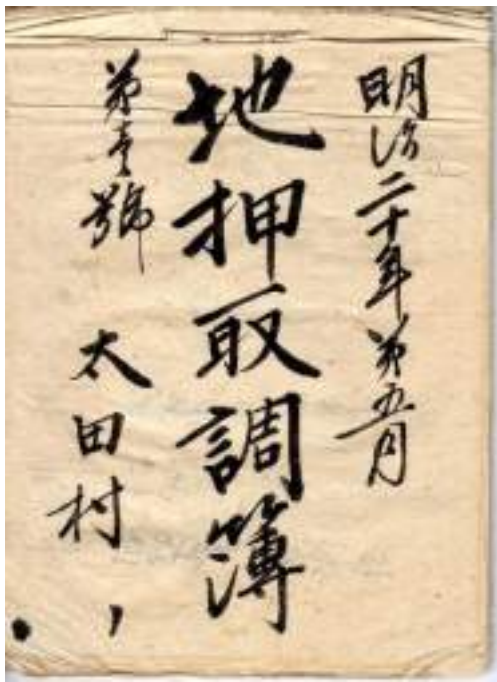 明治二十年第五月
地押取調簿
第壹號 太田村